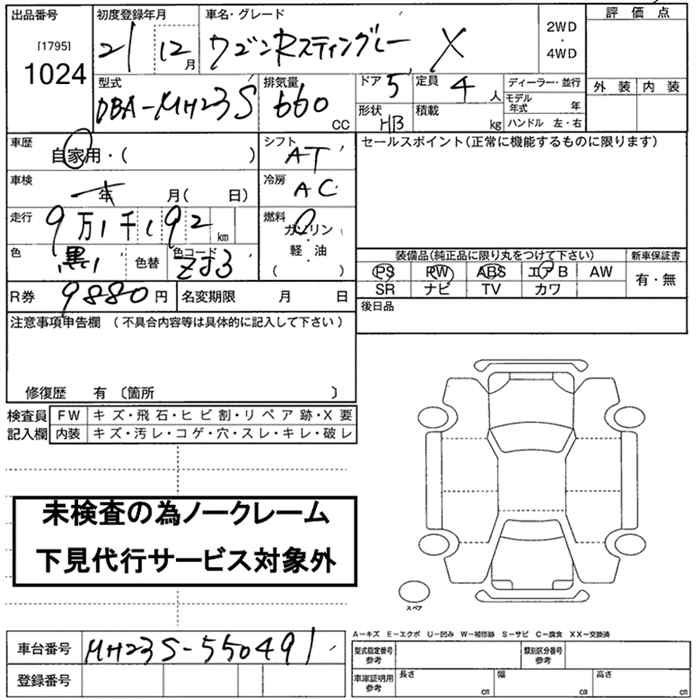 出品番号 初度登録年月 車名・グレード 2WD ・ 4WD 評価点
[1795]
1024 21 12月 ワゴンRスティングレー X
型式 排気量 ドア 定員 ディーラー・並行 外装 内装
DBA-MH23S 660 CC 5 4人 モデル年式 年
形状 HB 積載 kg ハンドル 左・右
車歴 自家用・( ) シフト AT セールスポイント(正常に機能するものに限ります)
車検 年 月( 日) 冷房 AC
走行 9万1千192km 燃料 ガソリン
軽・油
( )
色 黒 色替 色コード ZJ3
装備品(純正品に限り丸をつけて下さい) 新車保証書
PS PW ABS エアB AW 有・無
SR ナビ TV カワ
R券 9880円 名変期限 月 日 後日品
注意事項申告欄 (不具合内容等は具体的に記入して下さい)
修復歴 有 〔箇所 〕
検査員 FW キズ・飛石・ヒビ割・リペア跡・X要
記入欄 内装 キズ・汚レ・コゲ・穴・スレ・キレ・破レ
未検査の為ノークレーム
下見代行サービス対象外
スペア
A-キズ E-エクボ U-凹み W-補修跡 S-サビ C-腐食 XX-交換済
車台番号 MH23S-550491 型式指定番号 参考 類別区分番号 参考
登録番号 車庫証明用 参考 長さ cm 幅 cm 高さ cm